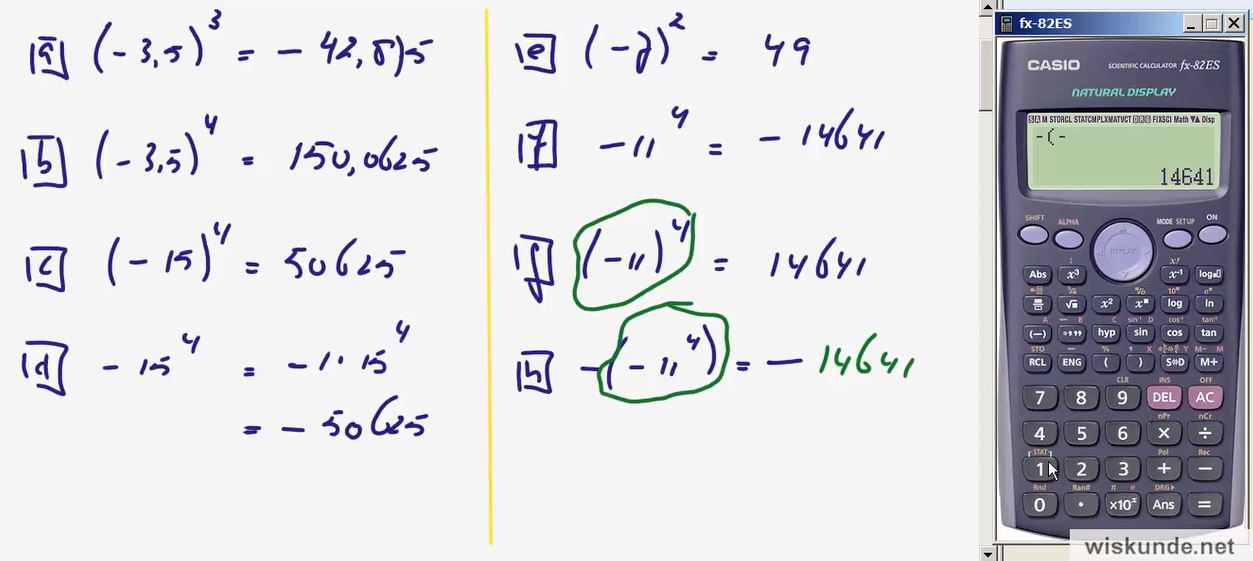 a (-3,5)³ = - 42,875
b (-3,5)⁴ = 150,0625
c (-15)⁴ = 50625
d -15⁴ = -1·15⁴
= - 50625
e (-7)² = 49
f -11⁴ = - 14641
g (-11)⁴ = 14641
h -(-11⁴) = - 14641
fx-82ES
CASIO SCIENTIFIC CALCULATOR fx-82ES
NATURAL DISPLAY
S A M STORCL STATCMPLXMATVCT D R G FIXSCI Math ▼▲ Disp
-(-
14641
SHIFT ALPHA MODE SETUP ON
REPLAY
Abs x³ x⁻¹ log
√ x² log ln
(−) hyp sin cos tan
RCL ENG ( ) S⇔D M+
7 8 9 DEL AC
4 5 6 × ÷
1 2 3 + −
0 · ×10ˣ Ans =
wiskunde.net